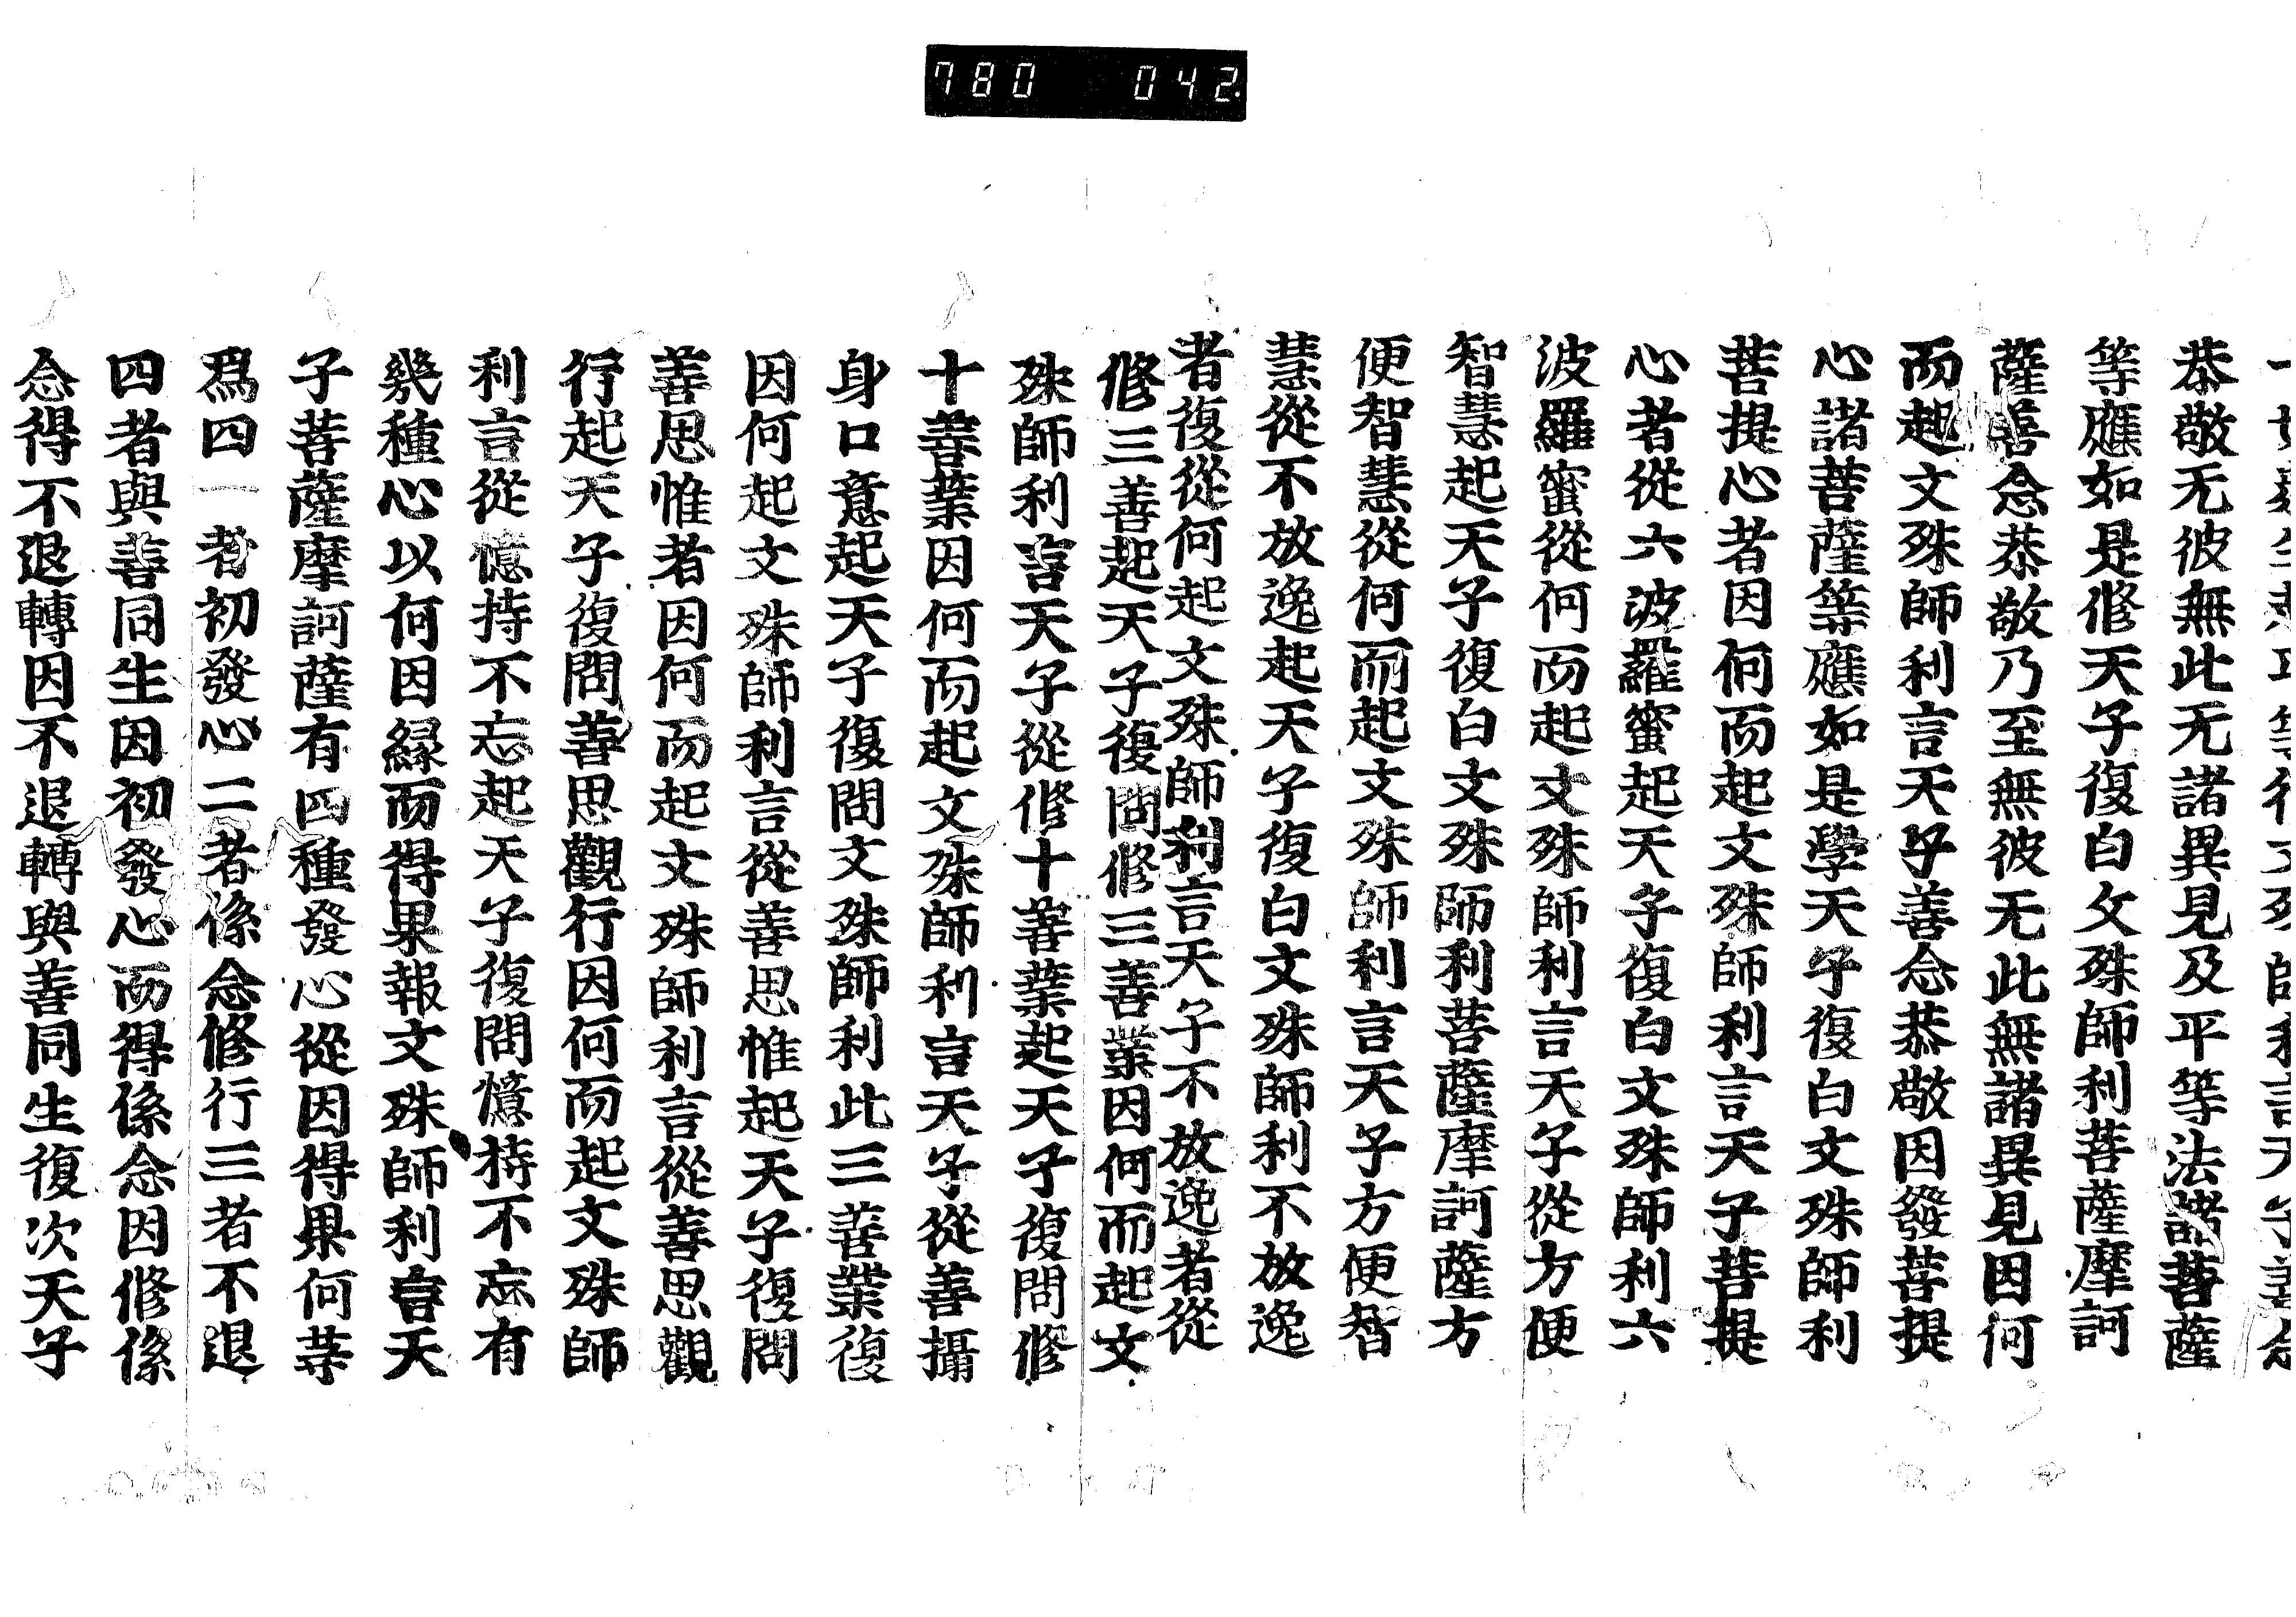 780 042
恭敬无彼無此无諸異見及平等法諸菩薩
等應如是修天子復白文殊師利菩薩摩訶
薩善念恭敬乃至無彼无此無諸異見因何
而起文殊師利言天子善念恭敬因發菩提
心諸菩薩等應如是學天子復白文殊師利
菩提心者因何而起文殊師利言天子菩提
心者從六波羅蜜起天子復白文殊師利六
波羅蜜從何而起文殊師利言天子從方便
智慧起天子復白文殊師利菩薩摩訶薩方
便智慧從何而起文殊師利言天子方便智
慧從不放逸起天子復白文殊師利不放逸
者復從何起文殊師利言天子不放逸者從
修三善起天子復問修三善業因何而起文
殊師利言天子從修十善業起天子復問修
十善業因何而起文殊師利言天子從善攝
身口意起天子復問文殊師利此三善業復
因何起文殊師利言從善思惟起天子復問
善思惟者因何而起文殊師利言從善思觀
行起天子復問善思觀行因何而起文殊師
利言從憶持不忘起天子復問憶持不忘有
幾種心以何因緣而得果報文殊師利言天
子菩薩摩訶薩有四種發心從因得果何等
爲四一者初發心二者係念修行三者不退
四者與善同生因初發心而得係念因修係
念得不退轉因不退轉與善同生復次天子